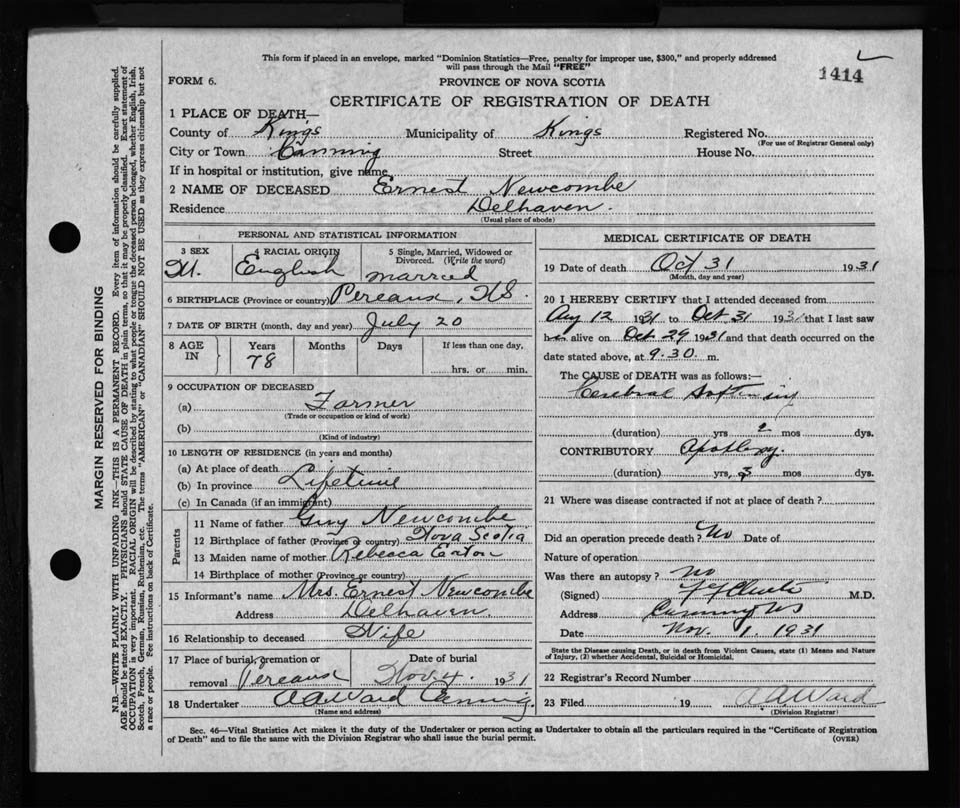 This form if placed in an envelope, marked "Dominion Statistics—Free, penalty for improper use, $300," and properly addressed
will pass through the Mail "FREE"
1414
FORM 6.
PROVINCE OF NOVA SCOTIA
CERTIFICATE OF REGISTRATION OF DEATH
1 PLACE OF DEATH—
County of Kings Municipality of Kings Registered No.
(For use of Registrar General only)
City or Town Canning Street House No.
If in hospital or institution, give name
2 NAME OF DECEASED Ernest Newcombe
Residence Delhaven.
(Usual place of abode)
PERSONAL AND STATISTICAL INFORMATION
3 SEX 4 RACIAL ORIGIN 5 Single, Married, Widowed or
Divorced. (Write the word)
M. English married
6 BIRTHPLACE (Province or country) Pereaux, N.S.
7 DATE OF BIRTH (month, day and year) July 20
8 AGE IN Years Months Days If less than one day,
78 hrs. or min.
9 OCCUPATION OF DECEASED
(a) Farmer
(Trade or occupation or kind of work)
(b)
(Kind of industry)
10 LENGTH OF RESIDENCE (in years and months)
(a) At place of death
(b) In province Lifetime
(c) In Canada (if an immigrant)
Parents
11 Name of father Newcombe
12 Birthplace of father (Province or country) Nova Scotia
13 Maiden name of mother Rebecca Eaton
14 Birthplace of mother (Province or country)
15 Informant's name Mrs. Ernest Newcombe
Address Delhaven.
16 Relationship to deceased Wife
17 Place of burial, cremation or removal Pereaux Date of burial Nov 4. 1931
18 Undertaker A A Ward Canning.
(Name and address)
MEDICAL CERTIFICATE OF DEATH
19 Date of death Oct 31 1931
(Month, day and year)
20 I HEREBY CERTIFY that I attended deceased from
Aug 12 1931 to Oct 31 1931 that I last saw
him alive on Oct 29 1931 and that death occurred on the
date stated above, at 9.30 m.
The CAUSE of DEATH was as follows:—
Cerebral softening
(duration) yrs 2 mos dys.
CONTRIBUTORY Apoplexy.
(duration) yrs, 3 mos dys.
21 Where was disease contracted if not at place of death?
Did an operation precede death? No Date of
Nature of operation
Was there an autopsy? no
(Signed) M.D.
Address Canning NS
Date Nov. 1. 1931
State the Disease causing Death, or in death from Violent Causes, state (1) Means and Nature
of Injury, (2) whether Accidental, Suicidal or Homicidal.
22 Registrar's Record Number
23 Filed 19 A A Ward
(Division Registrar)
Sec. 46—Vital Statistics Act makes it the duty of the Undertaker or person acting as Undertaker to obtain all the particulars required in the "Certificate of Registration
of Death" and to file the same with the Division Registrar who shall issue the burial permit.
(OVER)
MARGIN RESERVED FOR BINDING
N.B.—WRITE PLAINLY WITH UNFADING INK—THIS IS A PERMANENT RECORD. Every item of information should be carefully supplied.
AGE should be stated EXACTLY. PHYSICIANS should STATE CAUSE OF DEATH in plain terms, so that it may be properly classified. Exact statement of
OCCUPATION is very important. RACIAL ORIGIN will be described by stating to what people or tongue the deceased person belonged, whether English, Irish,
Scotch, French, German, Russian, Ruthenian, etc. The terms "AMERICAN" or "CANADIAN" SHOULD NOT BE USED as they express citizenship but not
a race or people. See instructions on back of Certificate.